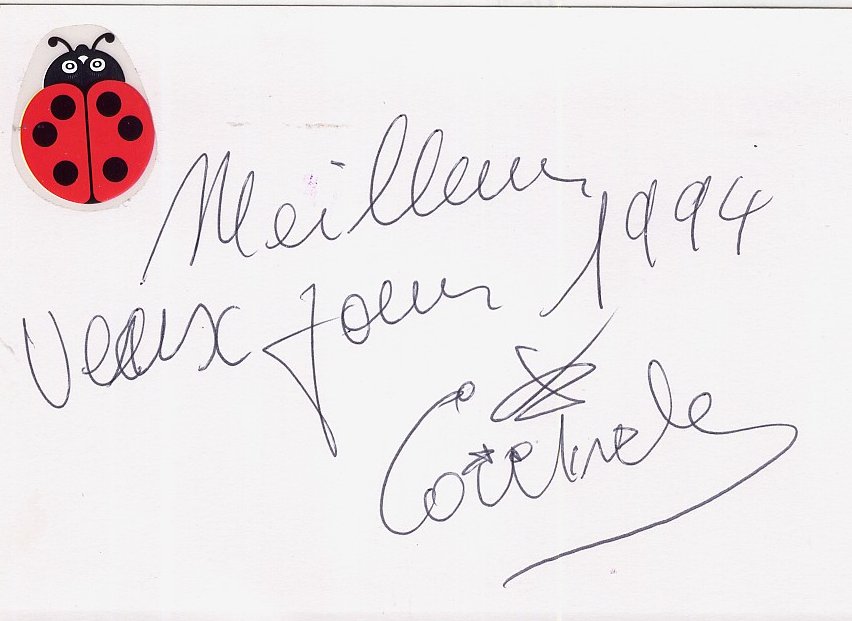 Meilleurs
Vœux pour 1994
Coccinelle